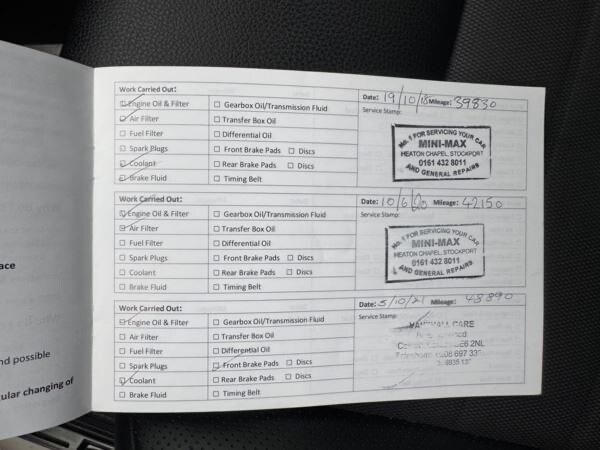 Work Carried Out:
Date: 19/10/18 Mileage: 39830
Engine Oil & Filter
Gearbox Oil/Transmission Fluid
Service Stamp:
Air Filter
Transfer Box Oil
Fuel Filter
Differential Oil
Spark Plugs
Front Brake Pads Discs
Coolant
Rear Brake Pads Discs
Brake Fluid
Timing Belt
No. 1 FOR SERVICING YOUR CAR
MINI-MAX
HEATON CHAPEL, STOCKPORT
0161 432 8011
AND GENERAL REPAIRS
Work Carried Out:
Date: 10/6/20 Mileage: 42150
Engine Oil & Filter
Gearbox Oil/Transmission Fluid
Service Stamp:
Air Filter
Transfer Box Oil
Fuel Filter
Differential Oil
Spark Plugs
Front Brake Pads Discs
Coolant
Rear Brake Pads Discs
Brake Fluid
Timing Belt
No. 1 FOR SERVICING YOUR CAR
MINI-MAX
HEATON CHAPEL, STOCKPORT
0161 432 8011
AND GENERAL REPAIRS
Work Carried Out:
Date: 5/10/21 Mileage: 48890
Engine Oil & Filter
Gearbox Oil/Transmission Fluid
Service Stamp:
Air Filter
Transfer Box Oil
Fuel Filter
Differential Oil
Spark Plugs
Front Brake Pads Discs
Coolant
Rear Brake Pads Discs
Brake Fluid
Timing Belt
CARE
6 2NL
697
ace
nd possible
ular changing of